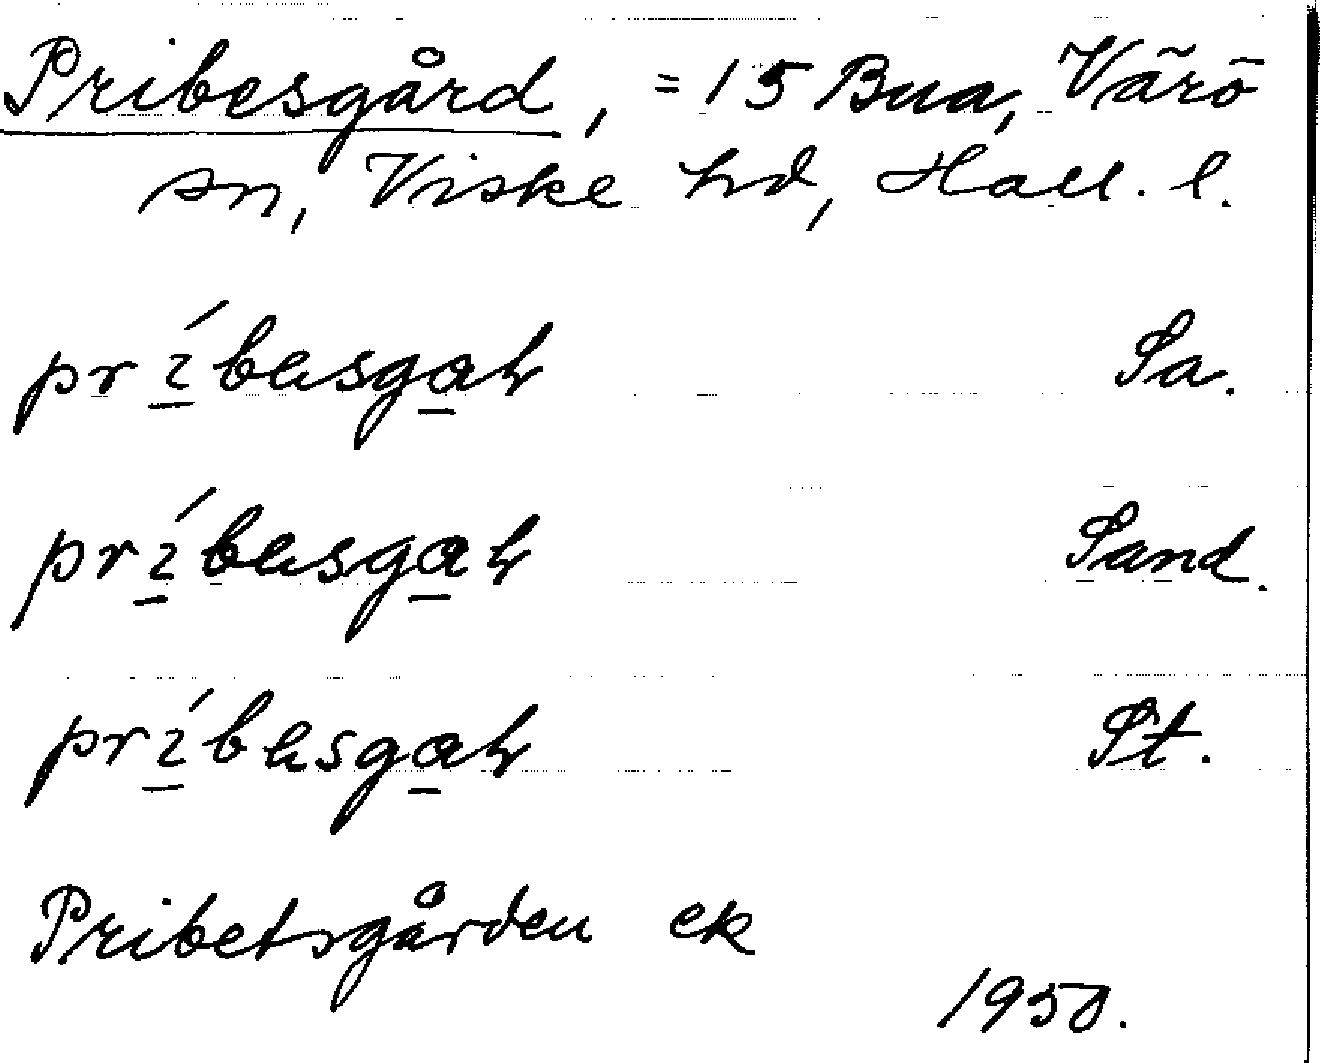 Pribesgård, = 15 Bua, Värö
sn, Viske hd, Hall. l.
prı̲́basga̲ꞎ Sa.
prı̲́basga̲ꞎ Sand.
prı̲́basga̲ꞎ St.
Pribetsgården ek
1950.